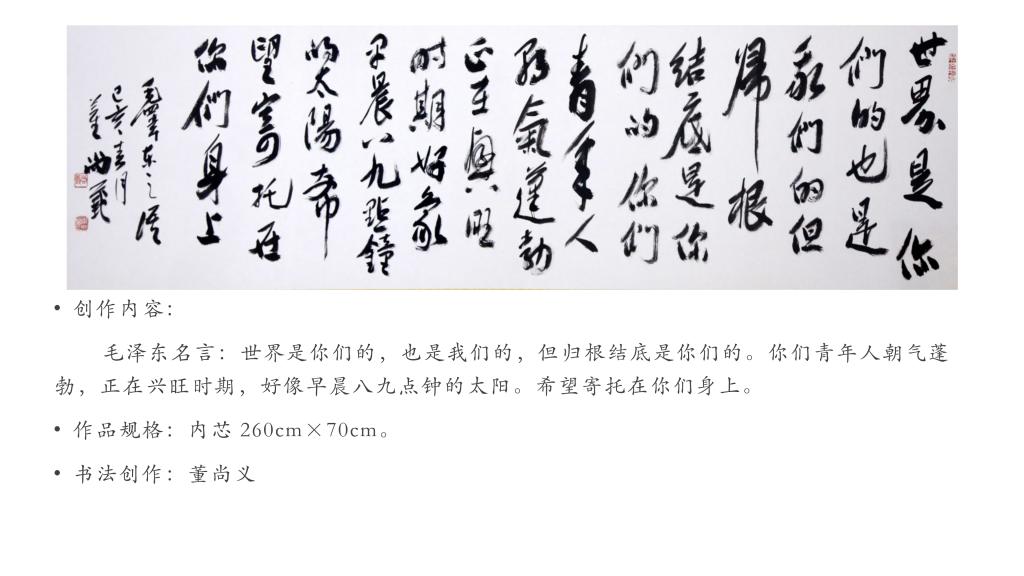 世界是你
們的也是
我們的但
歸根
結底是你
們的你們
青年人
朝氣蓬勃
正在興旺
時期好像
早晨八九點鐘
的太陽希
望寄托在
你們身上
毛澤東之語
己亥春月
董尚義
• 创作内容：
毛泽东名言：世界是你们的，也是我们的，但归根结底是你们的。你们青年人朝气蓬
勃，正在兴旺时期，好像早晨八九点钟的太阳。希望寄托在你们身上。
• 作品规格：内芯 260cm×70cm。
• 书法创作：董尚义